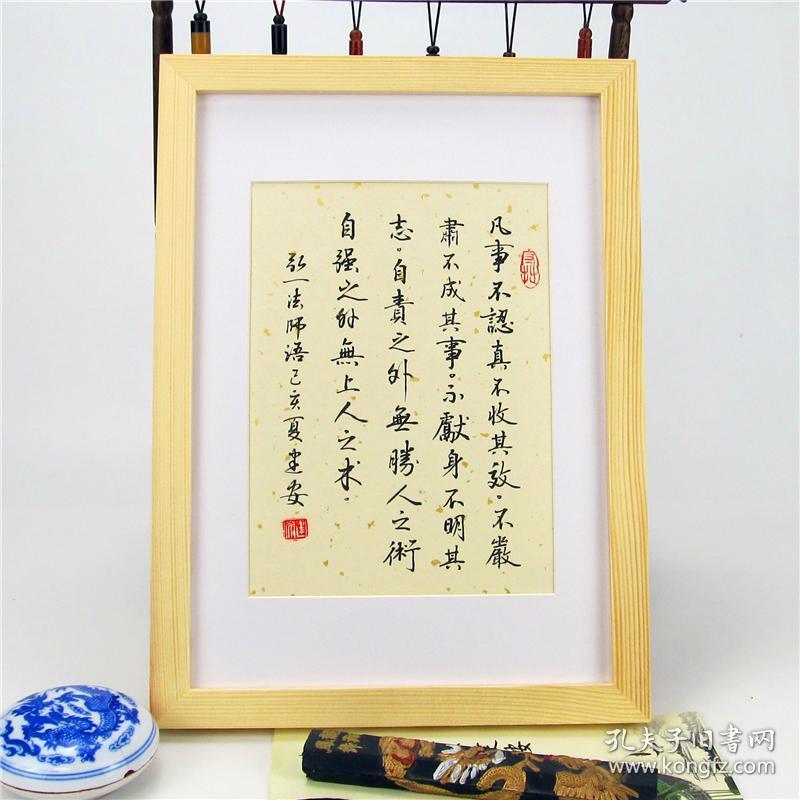 凡事不認真不收其效。不嚴
肅不成其事。不獻身不明其
志。自責之外無勝人之術
自强之外無上人之术。
弘一法師語己亥夏建安
孔夫子旧書网
www.kongfz.com